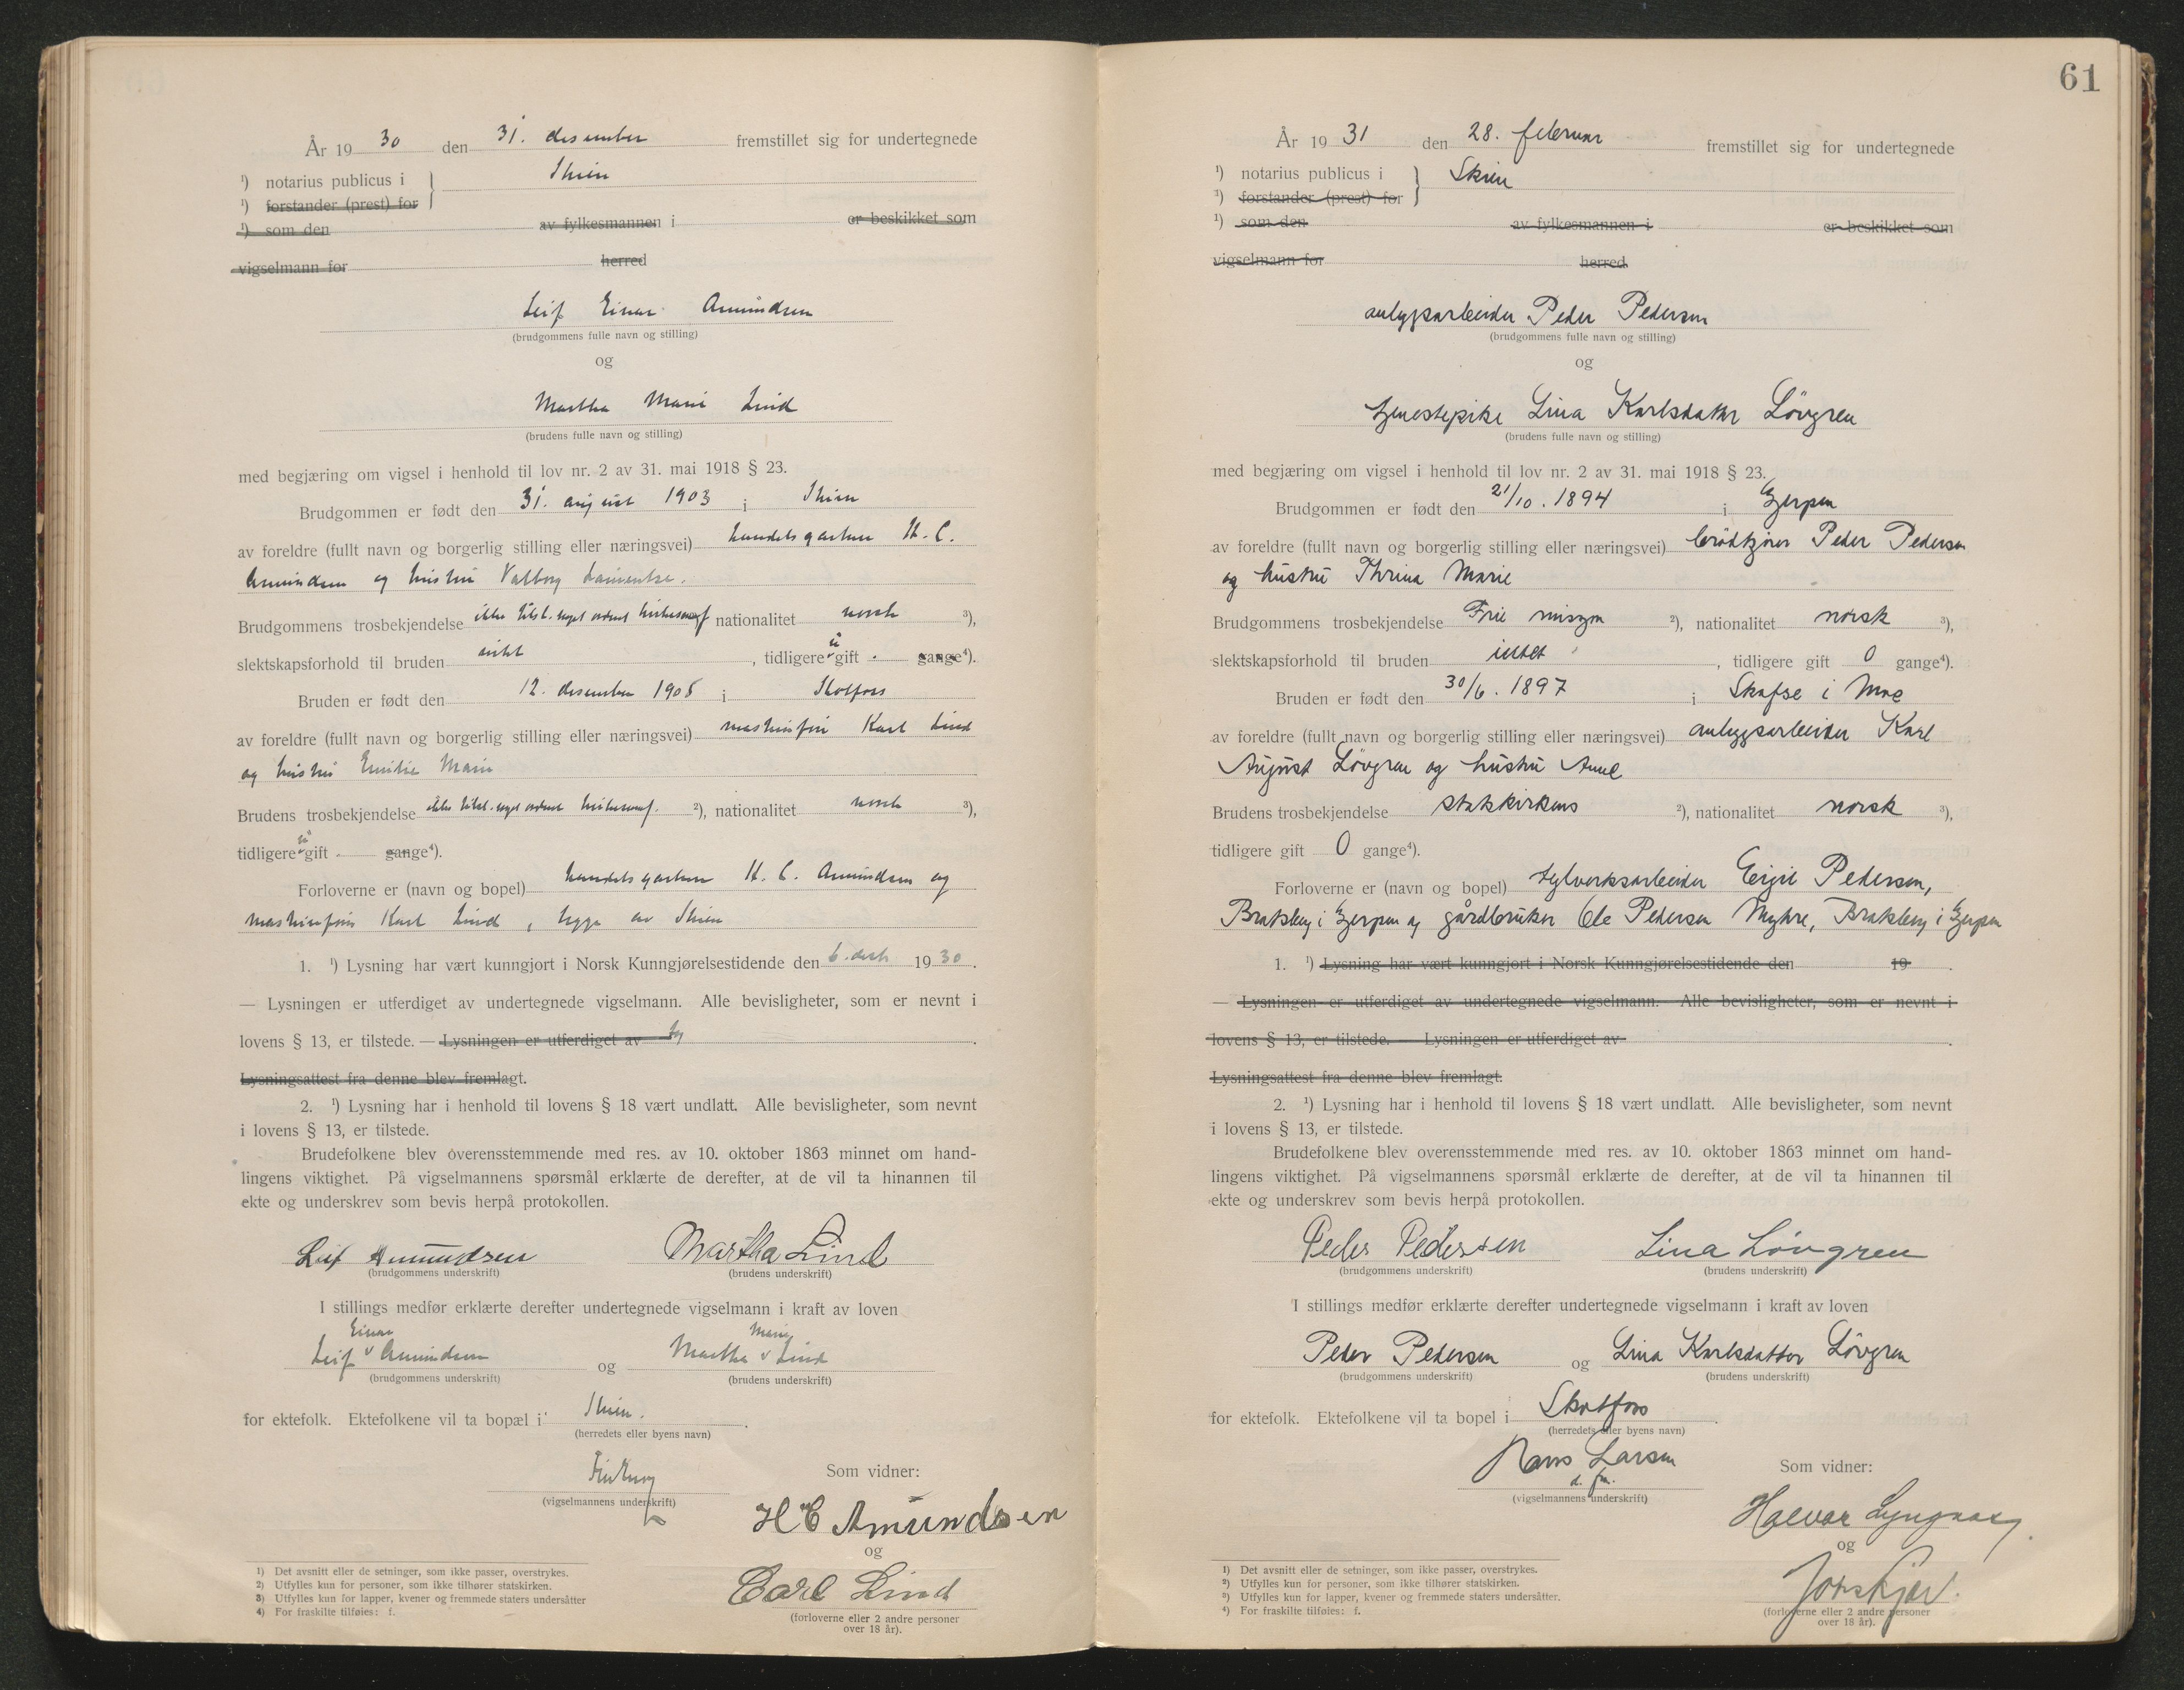 År 19 30 den 31. desember fremstillet sig for undertegnede
¹) notarius publicus i Skien
¹) forstander (prest) for
¹) som den av fylkesmannen i er beskikket som
vigselmann for herred
Leif Einar Amundsen
(brudgommens fulle navn og stilling)
og
Martha Marie Lind
(brudens fulle navn og stilling)
med begjæring om vigsel i henhold til lov nr. 2 av 31. mai 1918 § 23.
Brudgommen er født den 31. august 1903 i Skien
av foreldre (fullt navn og borgerlig stilling eller næringsvei) handelsgartner H. C.
Amundsen og hustru Valborg
Brudgommens trosbekjendelse ikke tilsl. noget ordnet kirkesamf nationalitet norsk ³),
slektskapsforhold til bruden intet, tidligere u gift - gange⁴).
Bruden er født den 12. desember 1908 i Skotfoss
av foreldre (fullt navn og borgerlig stilling eller næringsvei) maskinfører Karl Lind
og hustru Emilie Marie
Brudens trosbekjendelse ikke tilsl. noget ordnet kirkesamf. ²), nationalitet norsk ³),
tidligere u gift - gange⁴).
Forloverne er (navn og bopel) handelsgartner H. C. Amundsen og
maskinfører Karl Lind, begge av Skien
1. ¹) Lysning har vært kunngjort i Norsk Kunngjørelsestidende den 6. desbr 19 30.
— Lysningen er utferdiget av undertegnede vigselmann. Alle bevisligheter, som er nevnt i
lovens § 13, er tilstede. — Lysningen er utferdiget av
Lysningsattest fra denne blev fremlagt.
2. ¹) Lysning har i henhold til lovens § 18 vært undlatt. Alle bevisligheter, som nevnt
i lovens § 13, er tilstede.
Brudefolkene blev overensstemmende med res. av 10. oktober 1863 minnet om hand-
lingens viktighet. På vigselmannens spørsmål erklærte de derefter, at de vil ta hinannen til
ekte og underskrev som bevis herpå protokollen.
Leif Amundsen Martha Lind
(brudgommens underskrift) (brudens underskrift)
I stillings medfør erklærte derefter undertegnede vigselmann i kraft av loven
Einar Marie
Leif v Amundsen og Martha v Lind
(brudgommens underskrift) (brudens underskrift)
for ektefolk. Ektefolkene vil ta bopæl i Skien.
(herredets eller byens navn)
Som vidner:
(vigselmannens underskrift)
H C Amundsen
og
Carl Lind
(forloverne eller 2 andre personer
over 18 år).
¹) Det avsnitt eller de setninger, som ikke passer, overstrykes.
²) Utfylles kun for personer, som ikke tilhører statskirken.
³) Utfylles kun for lapper, kvener og fremmede staters undersåtter
⁴) For fraskilte tilføies: f.
61
År 19 31 den 28. februar fremstillet sig for undertegnede
¹) notarius publicus i Skien
¹) forstander (prest) for
¹) som den av fylkesmannen i er beskikket som
vigselmann for herred
anlegsarbeider Peder Pedersen
(brudgommens fulle navn og stilling)
og
tjenestepike Lina Karlsdatter Lövgren
(brudens fulle navn og stilling)
med begjæring om vigsel i henhold til lov nr. 2 av 31. mai 1918 § 23.
Brudgommen er født den 21/10. 1894 i Gjerpen
av foreldre (fullt navn og borgerlig stilling eller næringsvei) brödkjörer Peder Pedersen
og hustru Thrina Marie
Brudgommens trosbekjendelse Frie misjon ²), nationalitet norsk ³),
slektskapsforhold til bruden intet, tidligere gift 0 gange⁴).
Bruden er født den 30/6. 1897 i Skafse i Moe
av foreldre (fullt navn og borgerlig stilling eller næringsvei) anleggsarbeider Karl
August Lövgren og hustru Anne
Brudens trosbekjendelse statskirkens ²), nationalitet norsk ³),
tidligere gift 0 gange⁴).
Forloverne er (navn og bopel) teglverksarbeider Eigil Pedersen,
Bratsberg i Gjerpen og gårdbruker Ole Pedersen Myhre, Bratsberg i Gjerpen
1. ¹) Lysning har vært kunngjort i Norsk Kunngjørelsestidende den 19 .
— Lysningen er utferdiget av undertegnede vigselmann. Alle bevisligheter, som er nevnt i
lovens § 13, er tilstede. — Lysningen er utferdiget av
Lysningsattest fra denne blev fremlagt.
2. ¹) Lysning har i henhold til lovens § 18 vært undlatt. Alle bevisligheter, som nevnt
i lovens § 13, er tilstede.
Brudefolkene blev overensstemmende med res. av 10. oktober 1863 minnet om hand-
lingens viktighet. På vigselmannens spørsmål erklærte de derefter, at de vil ta hinannen til
ekte og underskrev som bevis herpå protokollen.
Peder Pedersen Lina Lövgren
(brudgommens underskrift) (brudens underskrift)
I stillings medfør erklærte derefter undertegnede vigselmann i kraft av loven
Peder Pedersen og Lina Karlsdatter Lövgren
(brudgommens underskrift) (brudens underskrift)
for ektefolk. Ektefolkene vil ta bopel i Skotfoss.
(herredets eller byens navn)
Hans Larsen Som vidner:
d. fm.
(vigselmannens underskrift)
Halvor
og
(forloverne eller 2 andre personer
over 18 år).
¹) Det avsnitt eller de setninger, som ikke passer, overstrykes.
²) Utfylles kun for personer, som ikke tilhører statskirken.
³) Utfylles kun for lapper, kvener og fremmede staters undersåtter.
⁴) For fraskilte tilføies: f.